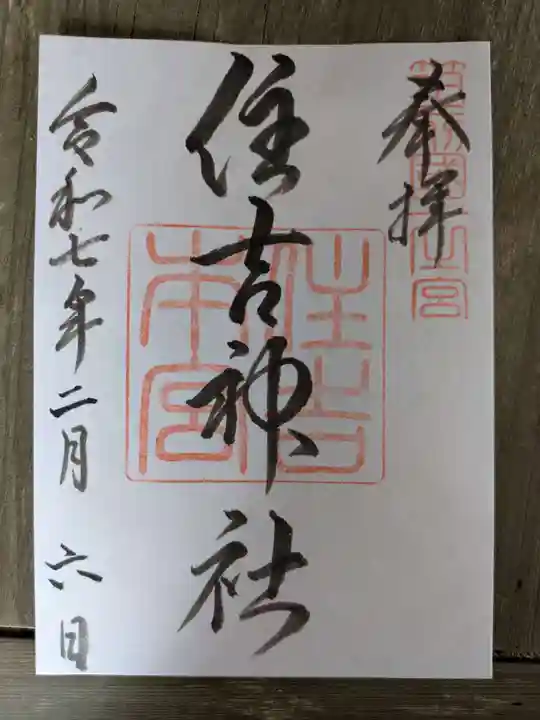 奉拝
住吉神社
住吉本宮
令和七年二月六日